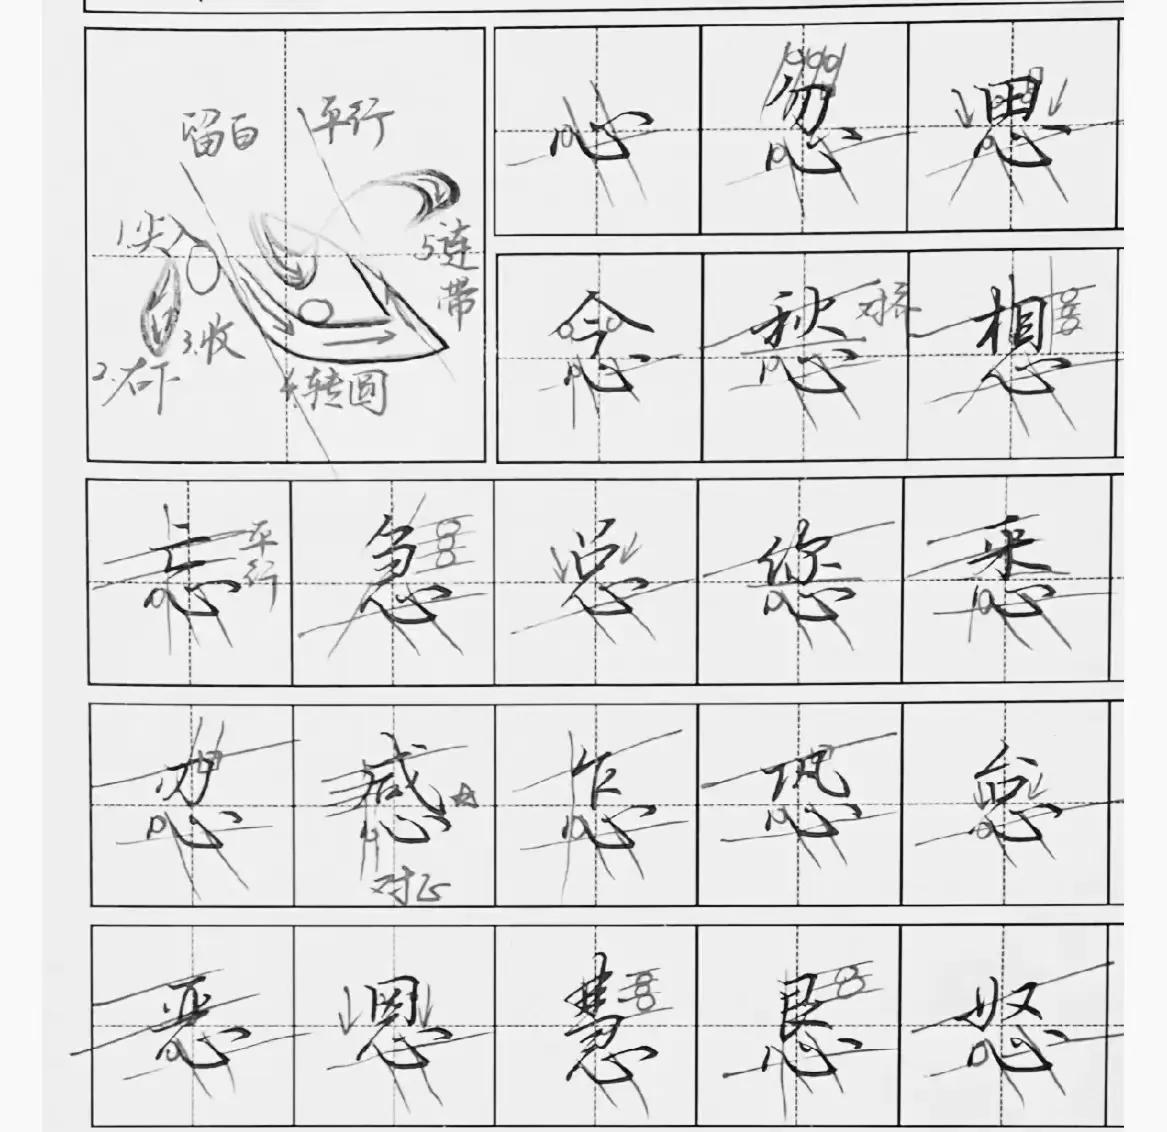 留白 平行
1.尖入
5.连带
3.收
2.右下
4.转圆
心 忽 思
念 愁 对齐 想
忘 平行 急 总 您 悉
忍 感 对正 怎 恐 怠
恶 恩 慧 恳 怒